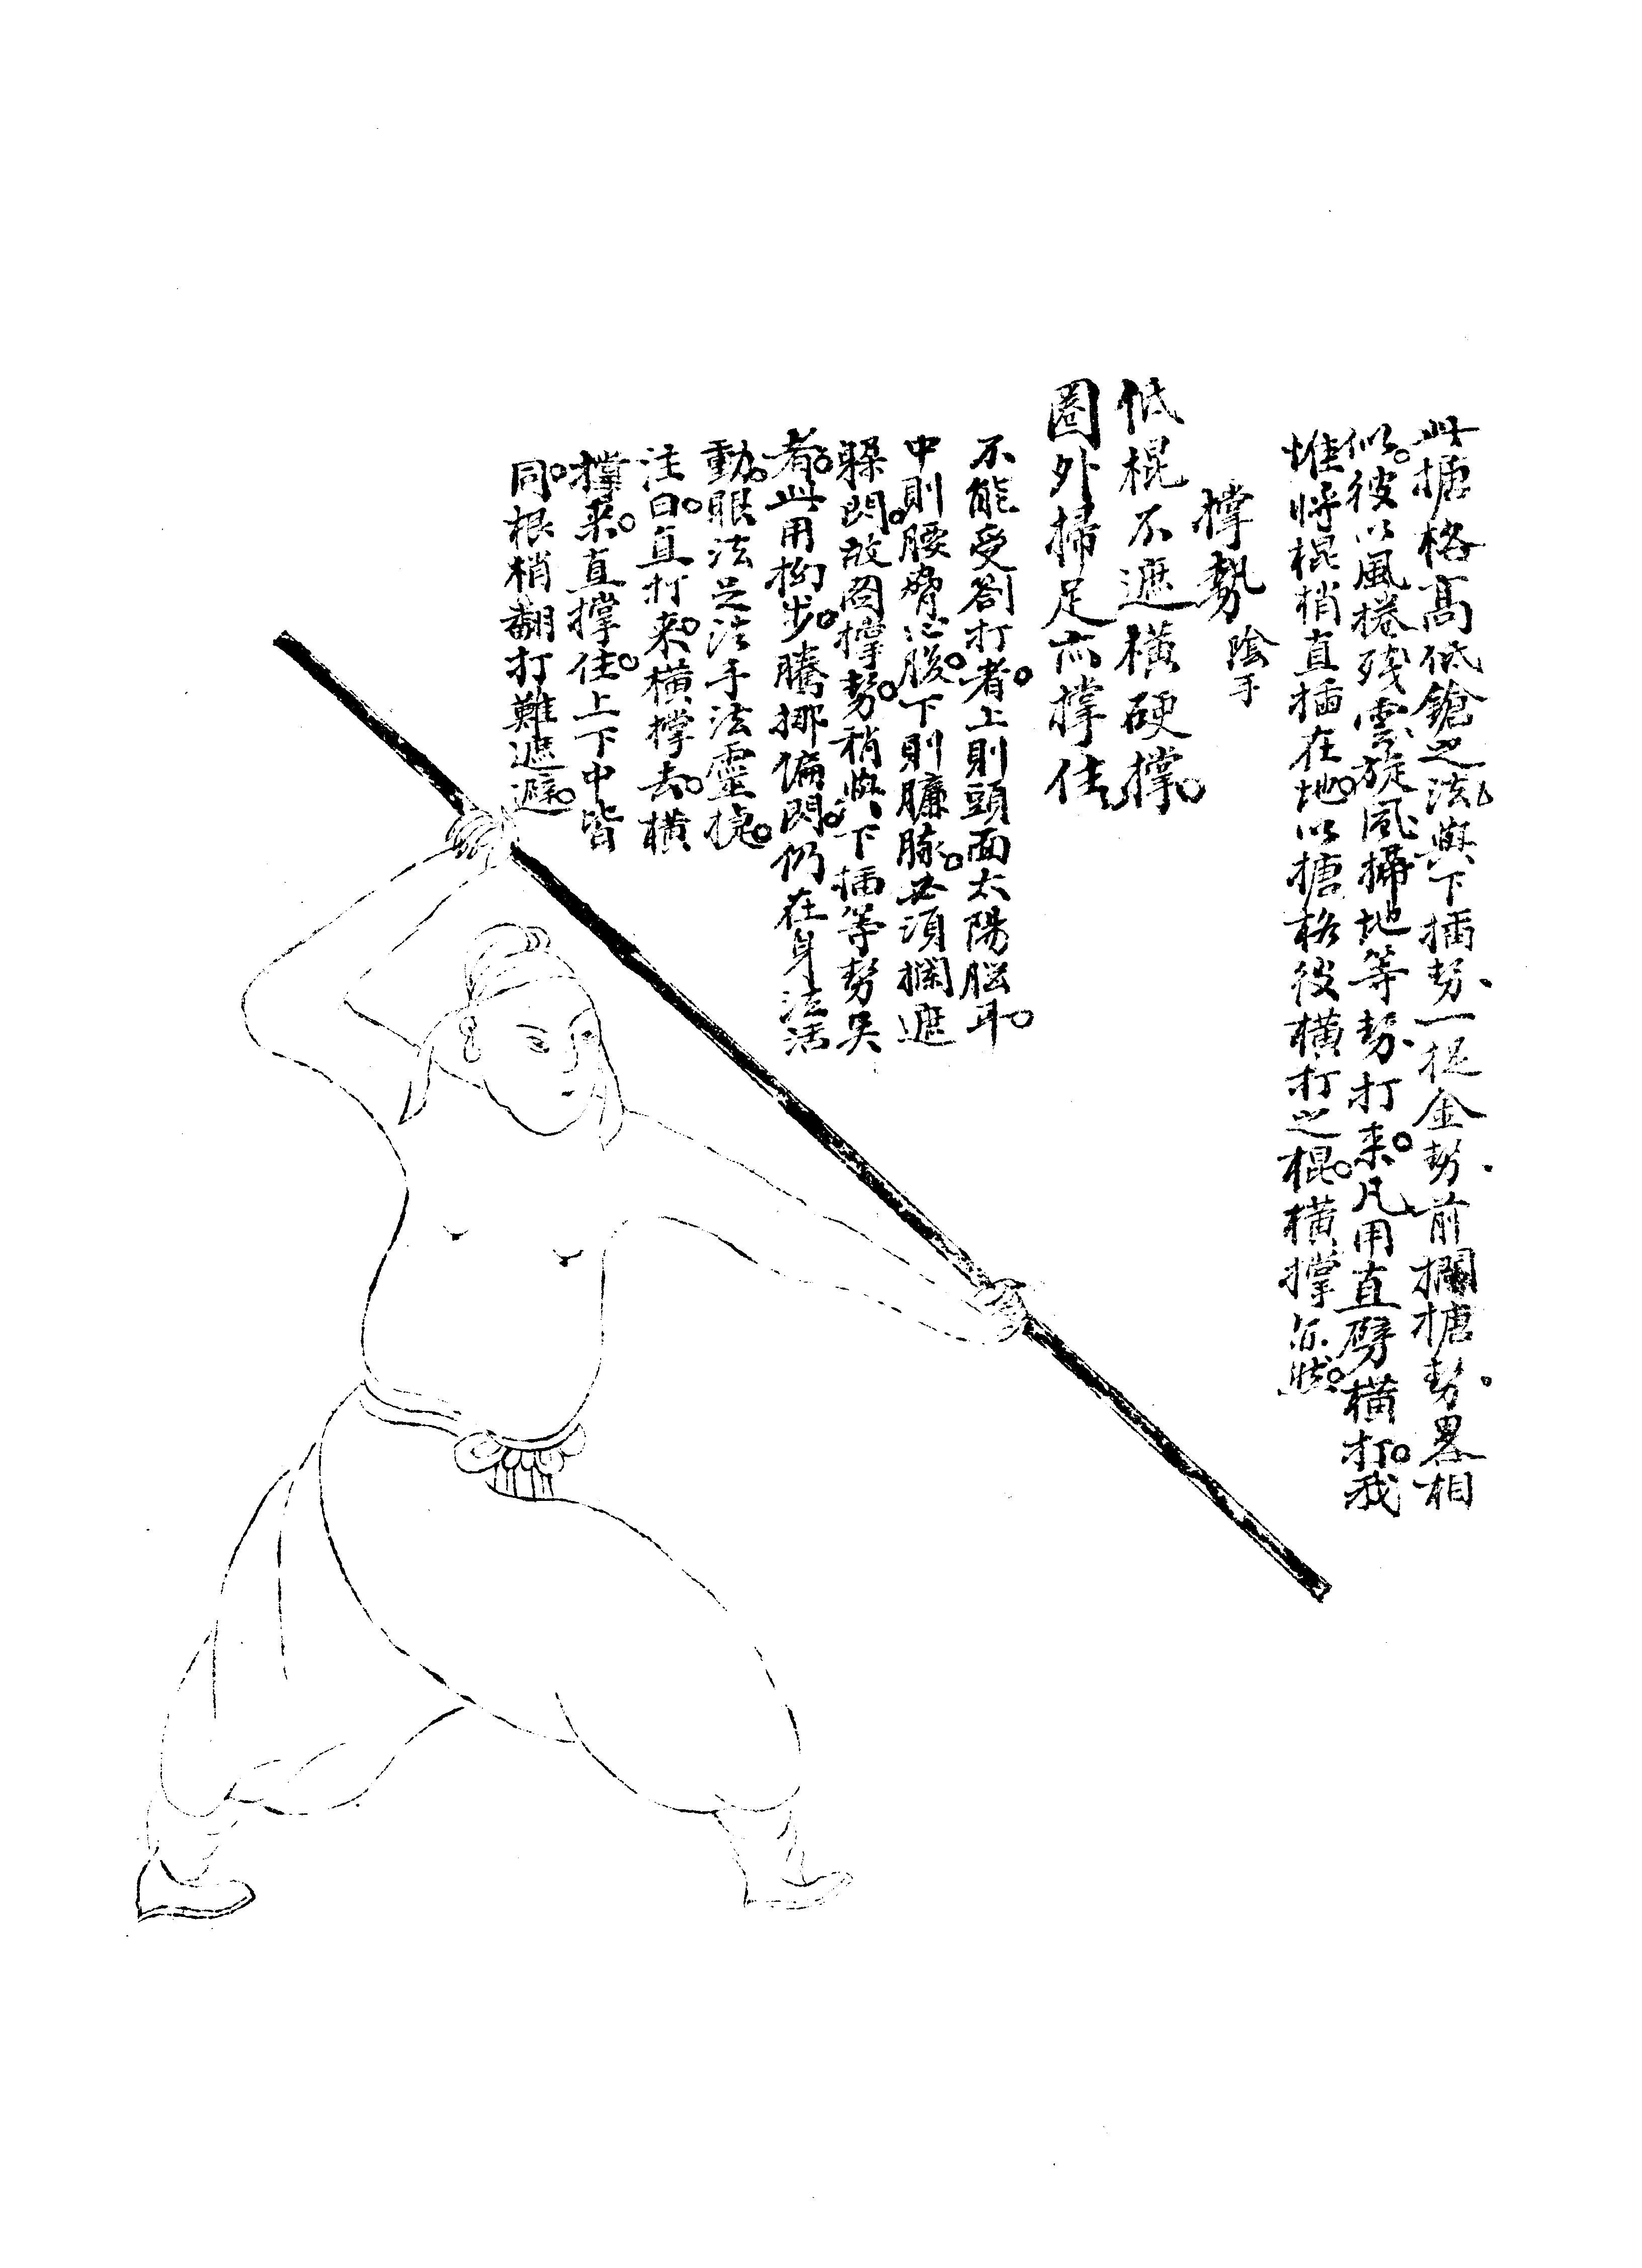 此搪格高低鎗之法與下插勢一提金勢前攔搪勢畧相
似彼以風捲殘雲旋風掃地等勢打来凡用直劈橫打我
惟將棍梢直插在地以搪格彼橫打之棍橫撑亦然
撑勢 陰手
低棍不遮橫硬撑
圈外掃足亦撑住
不能受劄打者上則頭面太陽腦耳
中則腰脅心腹下則臁脉必須攔遮
躲閃故圈撑勢稍與下插等勢異
者此用拗步騰挪偏閃仍在身法活
動眼法足法手法靈捷
注曰直打来橫撑去橫
撑来直撑住上下中皆
同根梢翻打難遮避